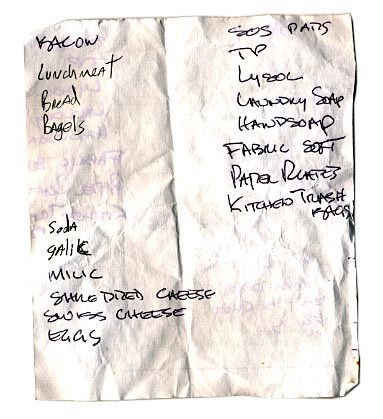 BACON
Lunchmeat
Bread
Bagels
Soda
galic
MILK
SHREDDED CHEESE
SWISS CHEESE
EGGS
SOS PADS
TP
LYSOL
LAUNDRY SOAP
HANDSOAP
FABRIC SOFT
PAPER PLATES
KITCHEN TRASH
BAGS